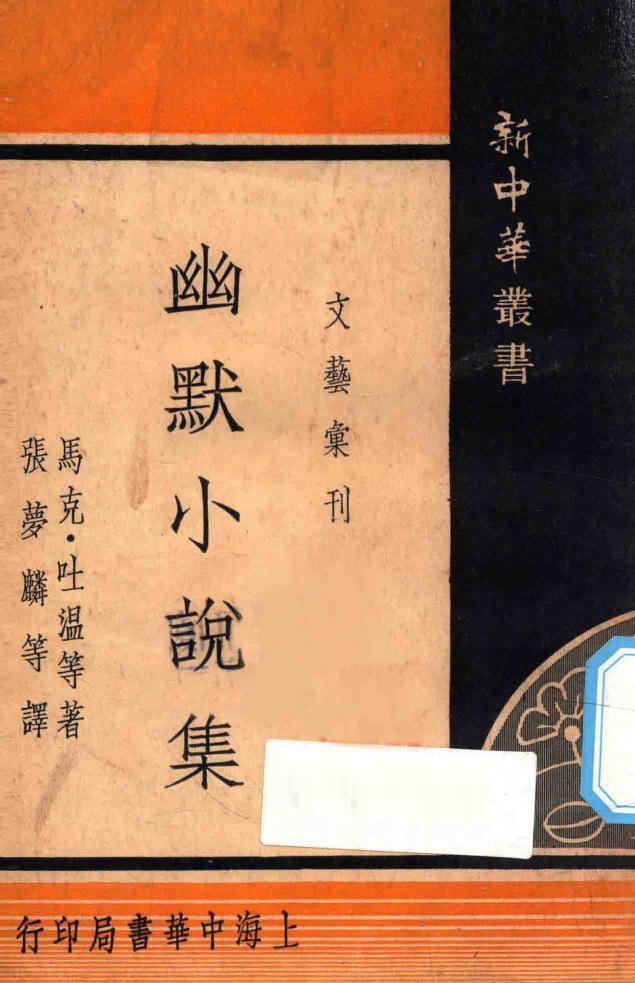 新中華叢書
文藝彙刊
幽默小說集
馬克·吐温等著
張夢麟等譯
上海中華書局印行